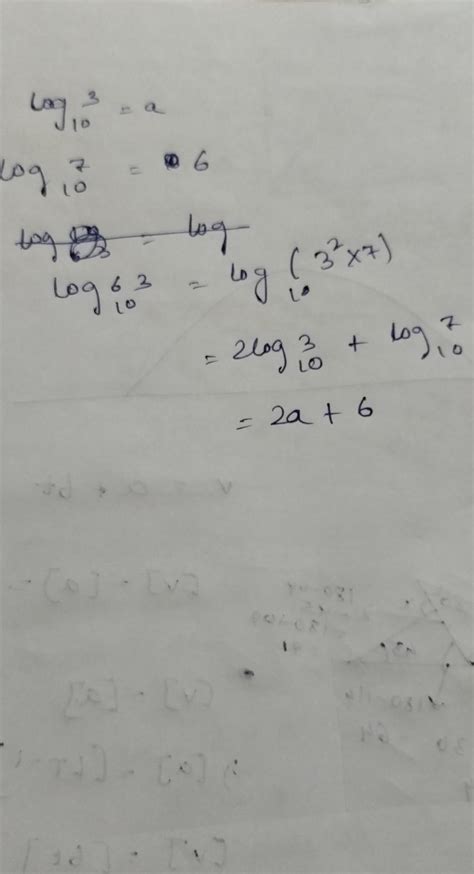 log₁₀ 3 = a
log₁₀ 7 = 6
log = log
log₁₀ 63 = log₁₀ (3² × 7)
= 2log₁₀ 3 + log₁₀ 7
= 2a + 6